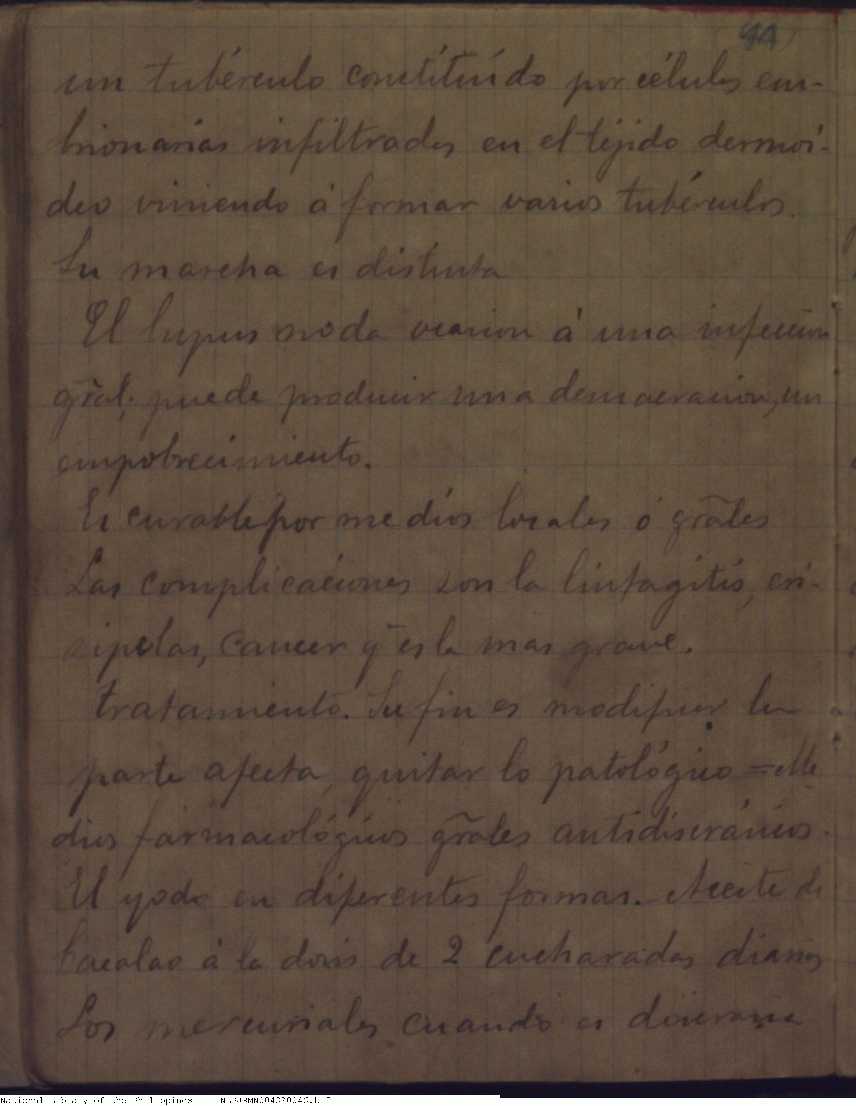 44
un tubérculo constítuído por células em-
brionarias infiltrades en el téjido dermoí-
deo viniendo á formar varios tubérculos.
Su marcha es distinta
El lupus no da ocasion á una infeccion
gral; puede producir una demacracion, un
empobrecimiento.
Es curable por medios locales ó grāles
Las complicaciones son la linfagitis, eri-
sipelas, cancer q̄ es la mas grave.
tratamiento. Su fin es modificar la
parte afecta, quitar lo patológico = Me
dios fármacológicos grāles antidiscrásicos.
El yodo en diferentes formas. Aceite de
bacalao á la dosis de 2 cucharadas diarias
Los mercuriales cuando es discrasia
National Library of the Philippines